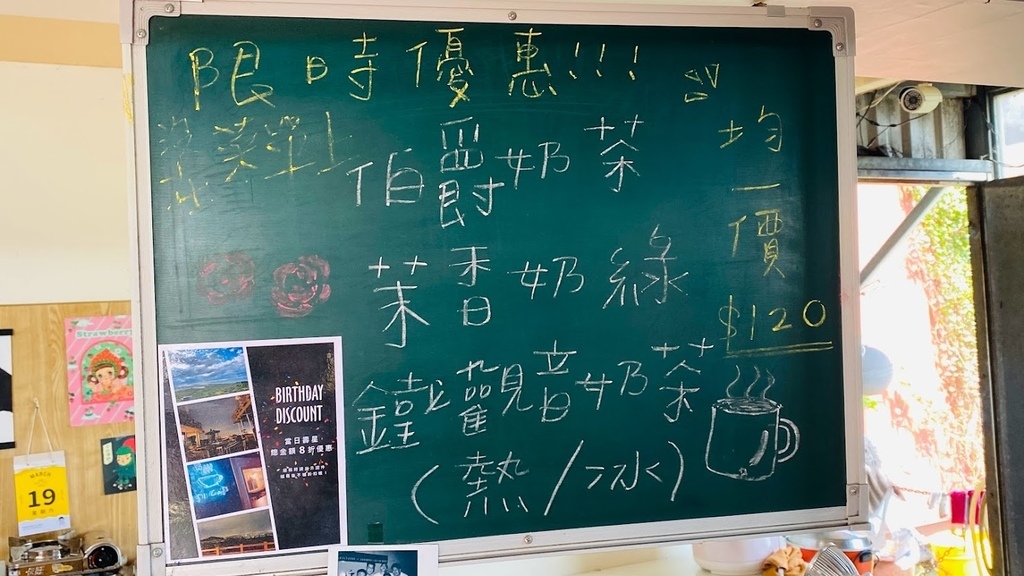 限時優惠!!!
伯爵奶茶
茉香奶綠
鐵觀音奶茶
(熱/冰)
均一價
$120
BIRTHDAY
DISCOUNT
當日壽星
總金額8折優惠
Strawberry
MARCH
19